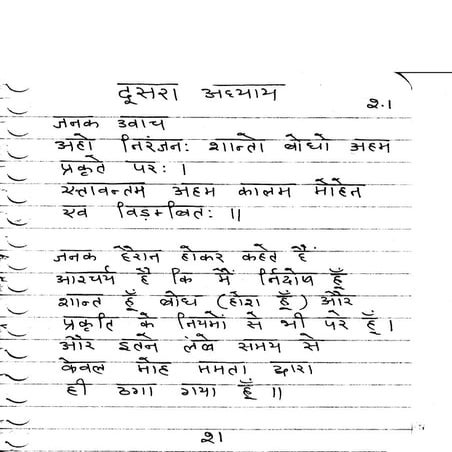 दूसरा अध्याय
२.1
जनक उवाच
अहो निरंजन: शान्तो बोधो अहम
प्रकृते पर: ।
एतावन्तम अहम कालम मोहेन
एव विड़+बित: ॥
जनक हैरान होकर कहते हैं
आश्चर्य है कि मैं र्निदोष हूँ
शान्त हूँ बोध (होश हूँ) और
प्रकृति के नियमों से भी परे हूँ ।
और इतने लंबे समय से
केवल मोह ममता द्वारा
ही ठगा गया हूँ ॥
२1